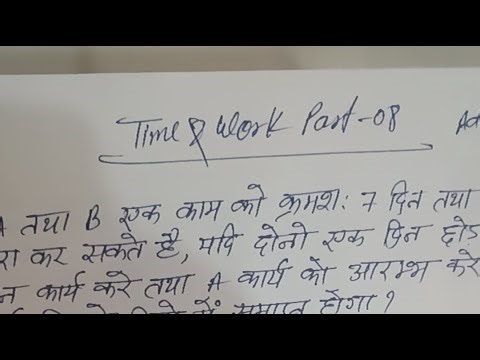 Time & Work Part-08
A तथा B एक काम को क्रमश: 7 दिन तथा
कर सकते है, यदि दोनो एक दिन छोड़
कार्य करे तथा A कार्य को आरम्भ करे
में समाप्त होगा?